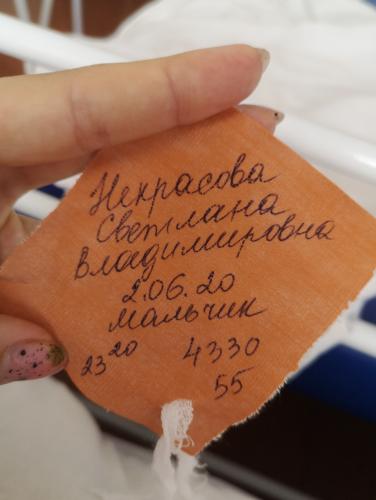 Некрасова
Светлана
Владимировна
2.06.20
мальчик
23²⁰ 4330
55